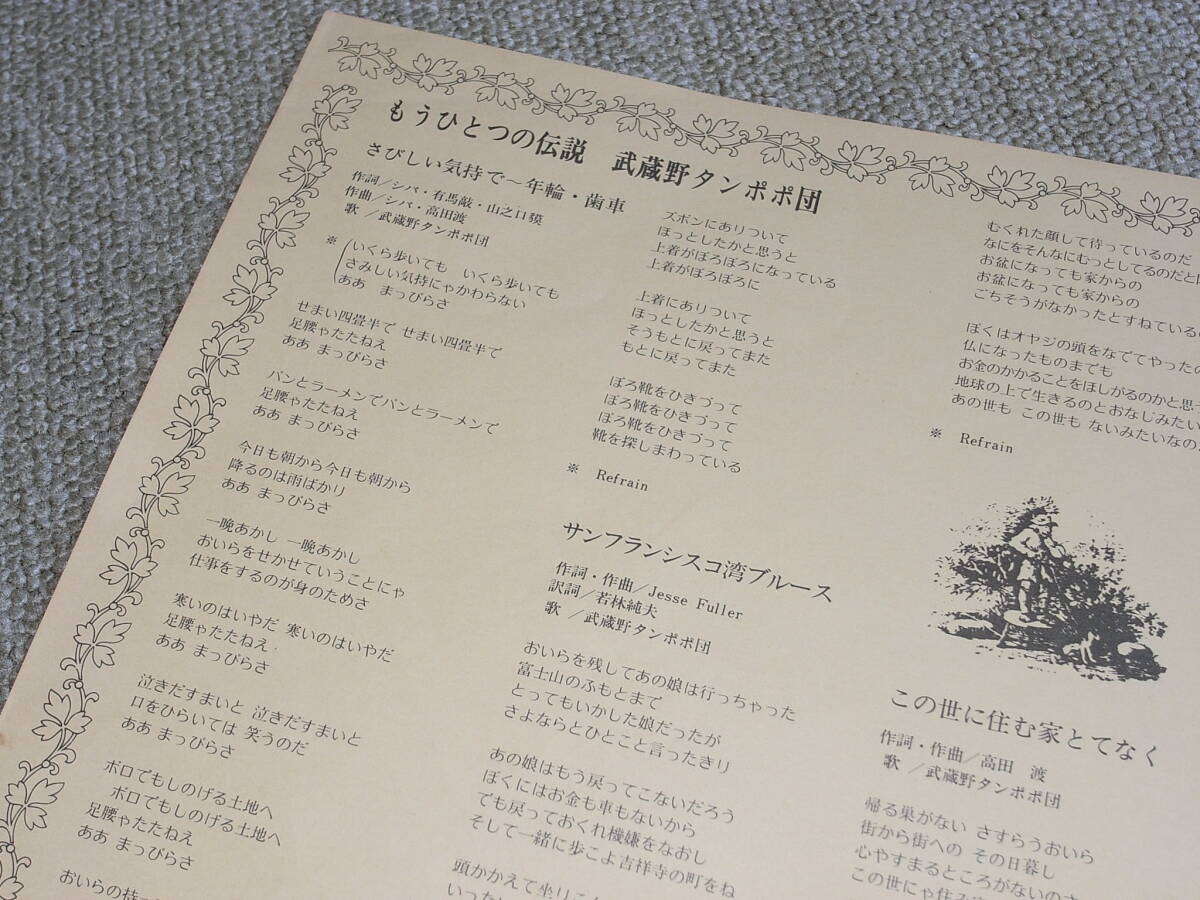 もうひとつの伝説　武蔵野タンポポ団
さびしい気持で～年輪・歯車
作詞／シバ・有馬敲・山之口貘
作曲／シバ・高田渡
歌　／武蔵野タンポポ団
※
いくら歩いても　いくら歩いても
さみしい気持にゃかわらない
ああ　まっぴらさ
せまい四畳半で せまい四畳半で
足腰ゃたたねえ
ああ まっぴらさ
パンとラーメンでパンとラーメンで
足腰ゃたたねえ
ああ まっぴらさ
今日も朝から今日も朝から
降るのは雨ばかり
ああ まっぴらさ
一晩あかし 一晩あかし
おいらをせかせていうことにゃ
仕事をするのが身のためさ
寒いのはいやだ 寒いのはいやだ
足腰ゃたたねえ
ああ まっぴらさ
泣きだすまいと 泣きだすまいと
口をひらいては 笑うのだ
ああ まっぴらさ
ボロでもしのげる土地へ
ボロでもしのげる土地へ
足腰ゃたたねえ
ああ まっぴらさ
おいらの持っ
ズボンにありついて
ほっとしたかと思うと
上着がぼろぼろになっている
上着がぼろぼろに
上着にありついて
ほっとしたかと思うと
そうもとに戻ってまた
もとに戻ってまた
ぼろ靴をひきづって
ぼろ靴をひきづって
ぼろ靴をひきづって
靴を探しまわっている
※　Refrain
サンフランシスコ湾ブルース
作詞・作曲／Jesse Fuller
訳詞／若林純夫
歌　／武蔵野タンポポ団
おいらを残してあの娘は行っちゃった
富士山のふもとまで
とってもいかした娘だったが
さよならとひとこと言ったきり
あの娘はもう戻ってこないだろう
ぼくにはお金も車もないから
でも戻っておくれ機嫌をなおし
そして一緒に歩こよ吉祥寺の町をね
頭かかえて坐りこ
いった
むくれた顔して待っているのだ
なにをそんなにむっとしてるのだと
お盆になっても家からの
お盆になっても家からの
ごちそうがなかったとすねている
ぼくはオヤジの頭をなでてやったの
仏になったものまでも
お金のかかることをほしがるのかと思う
地球の上で生きるのとおなじみたい
あの世も この世も ないみたいなの
※　Refrain
この世に住む家とてなく
作詞・作曲／高田　渡
歌　／武蔵野タンポポ団
帰る巣がない さすらうおいら
街から街への その日暮し
心やすまるところがないのさ
この世にゃ住み